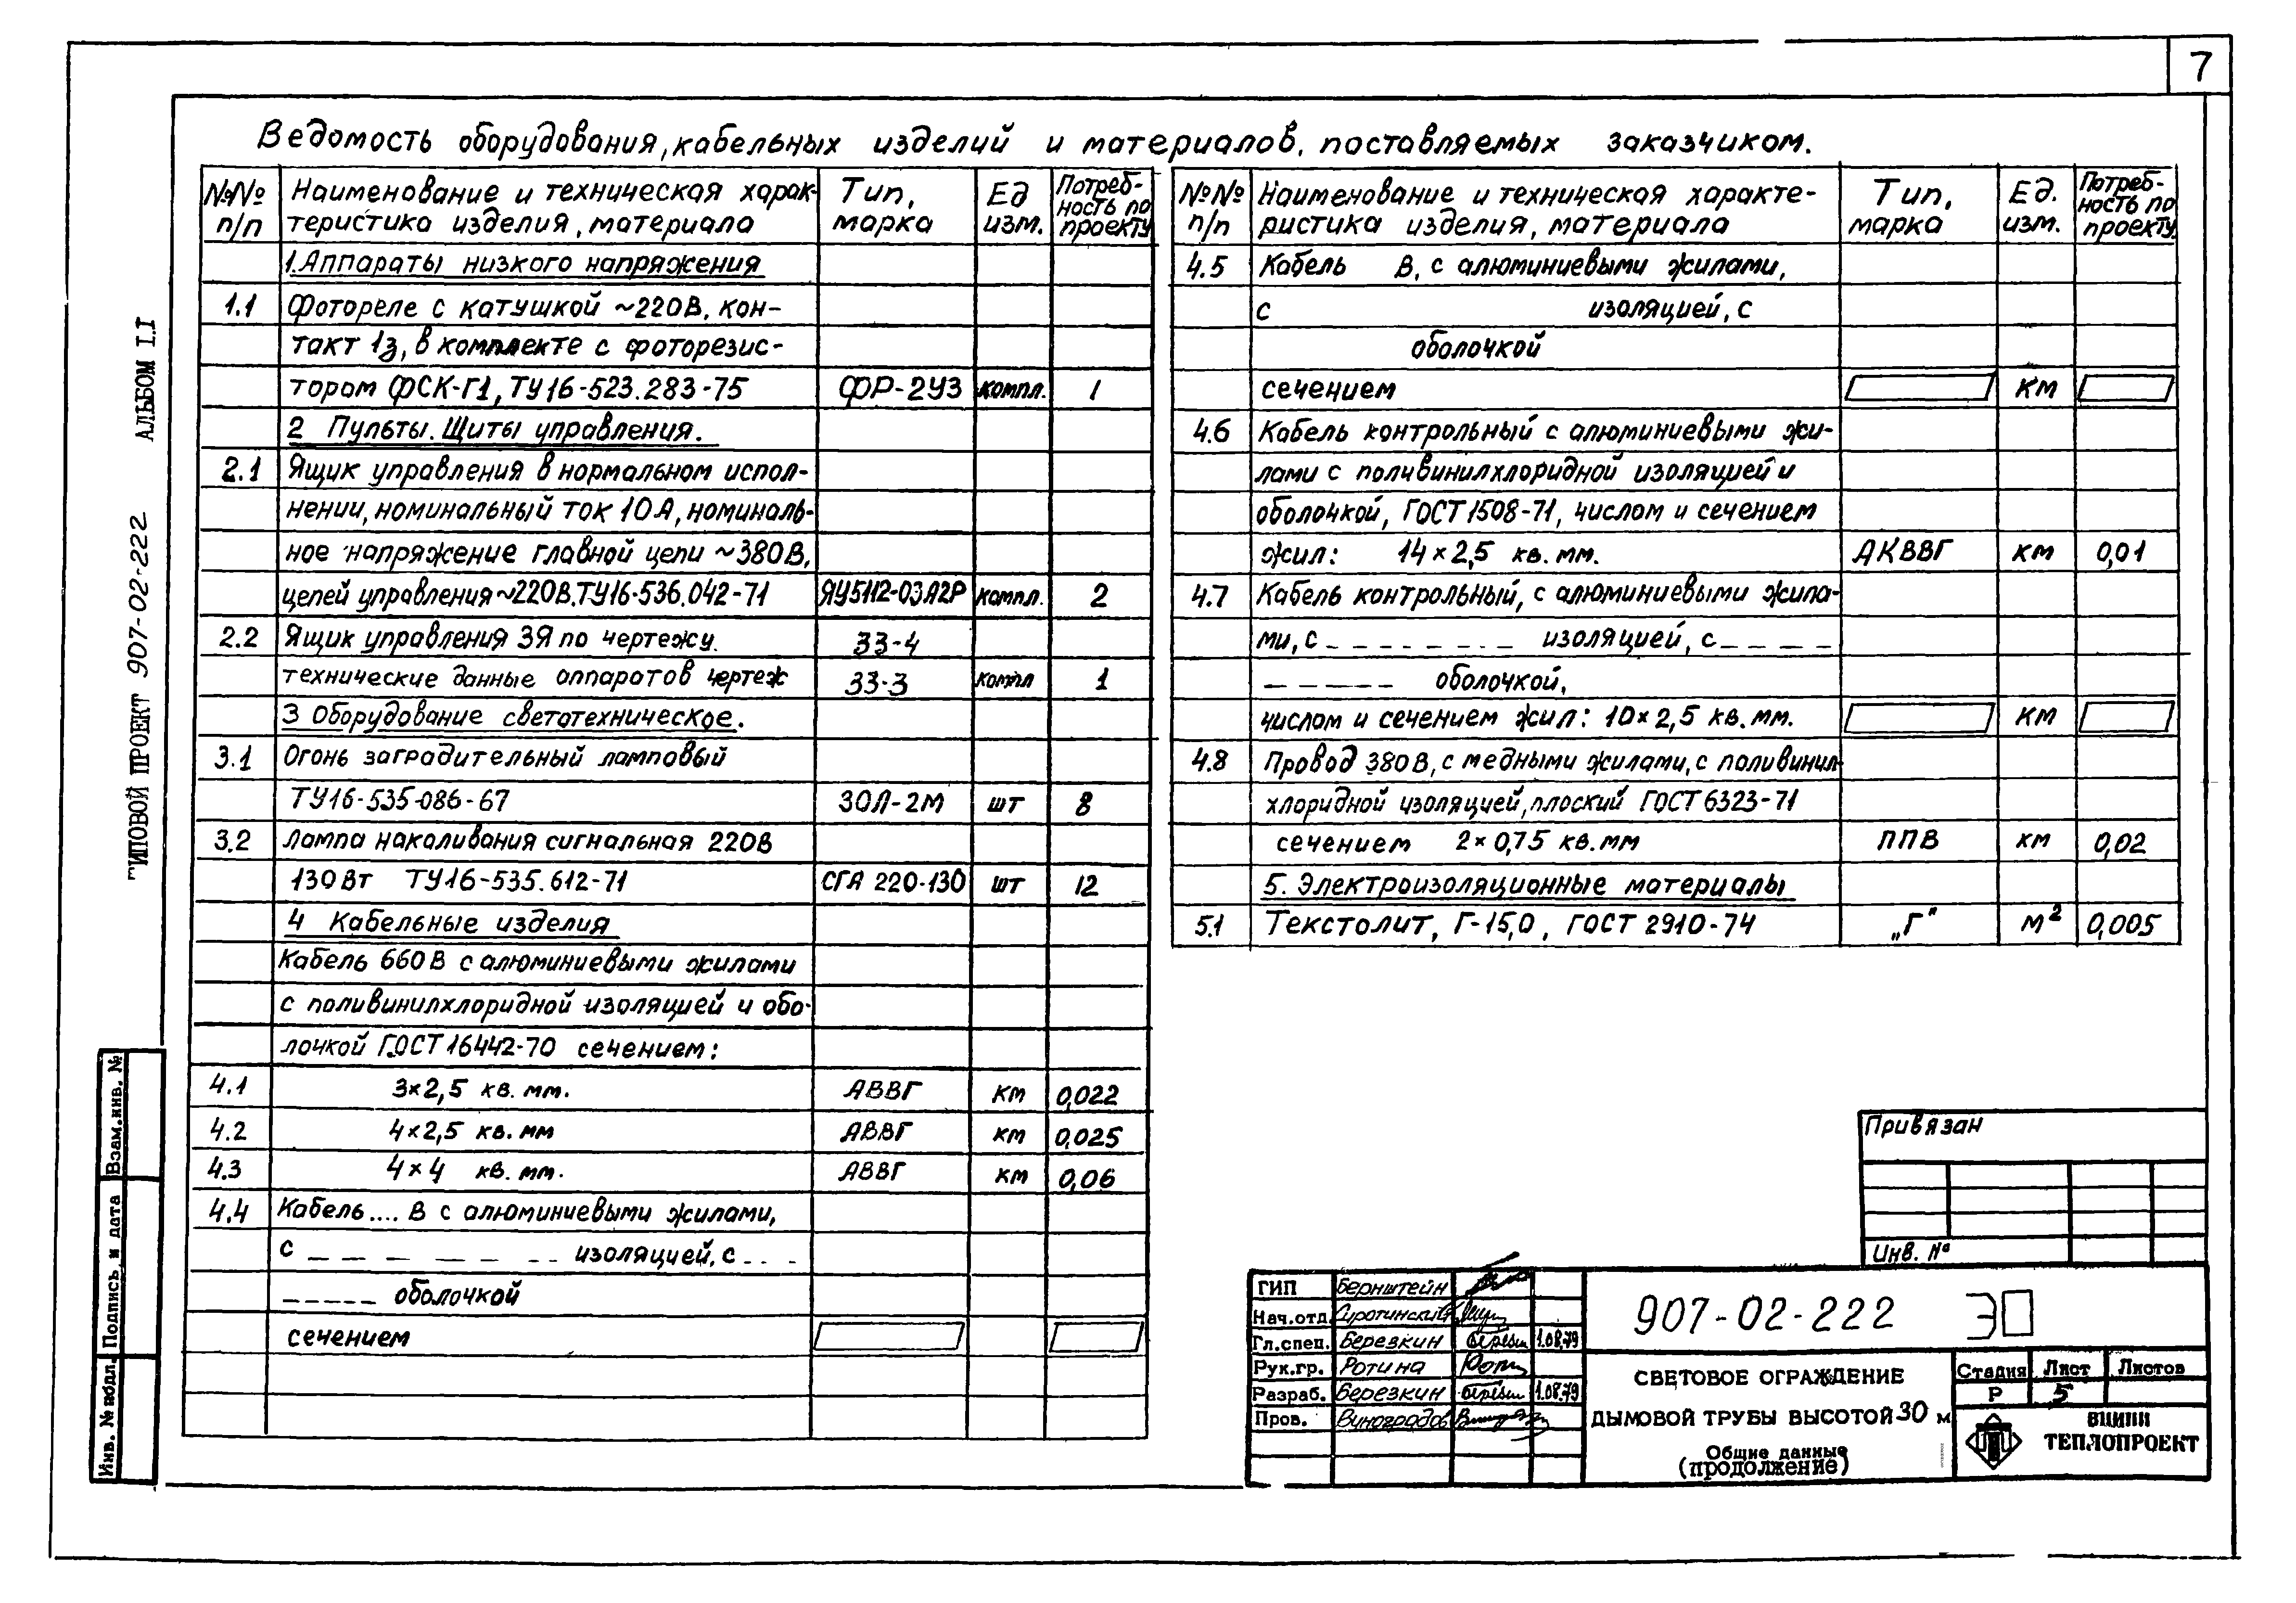 7
Ведомость оборудования, кабельных изделий и материалов, поставляемых заказчиком.
№№ п/п
Наименование и техническая харак-
теристика изделия, материала
Тип, марка
Ед изм.
Потреб-
ность по
проекту
1. Аппараты низкого напряжения
1.1 Фотореле с катушкой ~220В, кон-
такт 1з, в комплекте с фоторезис-
тором ФСК-Г1, ТУ16-523.283-75 ФР-2У3 компл. 1
2 Пульты. Щиты управления.
2.1 Ящик управления в нормальном испол-
нении, номинальный ток 10А, номиналь-
ное напряжение главной цепи ~380В,
цепей управления ~220В. ТУ16-536.042-71 ЯУ5112-03А2Р компл. 2
2.2 Ящик управления ЗЯ по чертежу. 33-4
технические данные аппаратов чертеж 33-3 компл 1
3 Оборудование светотехническое.
3.1 Огонь заградительный ламповый
ТУ16-535-086-67 ЗОЛ-2М шт 8
3.2 Лампа накаливания сигнальная 220В
130Вт ТУ16-535.612-71 СГА 220-130 шт 12
4 Кабельные изделия
Кабель 660В с алюминиевыми жилами
с поливинилхлоридной изоляцией и обо-
лочкой ГОСТ 16442-70 сечением:
4.1 3×2,5 кв. мм. АВВГ км 0,022
4.2 4×2,5 кв. мм АВВГ км 0,025
4.3 4×4 кв. мм. АВВГ км 0,06
4.4 Кабель .... В с алюминиевыми жилами,
с _ _ _ _ _ _ _ изоляцией, с _ _ _
_ _ _ _ _ оболочкой
сечением
№№ п/п
Наименование и техническая характе-
ристика изделия, материала
Тип, марка
Ед. изм.
Потреб-
ность по
проекту.
4.5 Кабель В, с алюминиевыми жилами,
с изоляцией, с
оболочкой
сечением км
4.6 Кабель контрольный с алюминиевыми жи-
лами с поливинилхлоридной изоляцией и
оболочкой, ГОСТ 1508-71, числом и сечением
жил: 14×2,5 кв. мм. АКВВГ км 0,01
4.7 Кабель контрольный, с алюминиевыми жила-
ми, с _ _ _ _ _ _ _ изоляцией, с _ _ _ _ _
_ _ _ _ _ _ оболочкой,
числом и сечением жил: 10×2,5 кв. мм. км
4.8 Провод 380В, с медными жилами, с поливинил-
хлоридной изоляцией, плоский ГОСТ 6323-71
сечением 2×0,75 кв. мм ППВ км 0,02
5. Электроизоляционные материалы
5.1 Текстолит, Г-15,0, ГОСТ 2910-74 „Г" м² 0,005
ТИПОВОЙ ПРОЕКТ 907-02-222 АЛЬБОМ I.I
Взам.инв. №
Подпись и дата
Инв. № подл.
Привязан
Инв. №
ГИП Бернштейн
Нач.отд. Сиротинский
Гл.спец. Березкин 1.08.79
Рук.гр. Ротина
Разраб. Березкин 1.08.79
Пров. Виноградов
907-02-222 Э
СВЕТОВОЕ ОГРАЖДЕНИЕ
ДЫМОВОЙ ТРУБЫ ВЫСОТОЙ 30 м
Общие данные
(продолжение)
Стадия Лист Листов
Р 5
ВНИПИ
ТЕПЛОПРОЕКТ